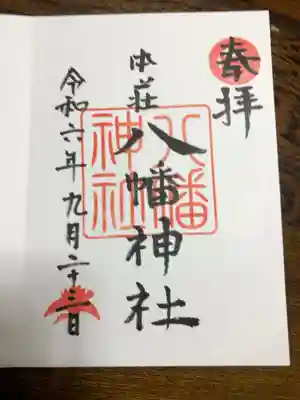 奉拝
本荘
八幡神社
八幡
神社
令和六年九月二十三日